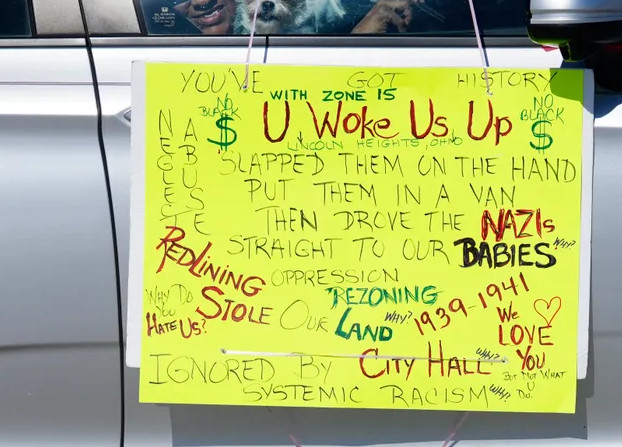 YOU'VE GOT HI$TORY
WITH ZONE IS
NO BLACK $
U Woke Us Up
NO BLACK $
LINCOLN HEIGHTS, OHIO
SLAPPED THEM ON THE HAND
PUT THEM IN A VAN
THEN DROVE THE NAZIs
STRAIGHT TO OUR BABIES WHY?
NEGLEST
ABUSE
REDLINING
OPPRESSION
WHY DO YOU HATE US?
STOLE OUR
REZONING
LAND WHY?
1939-1941
We ♡
LOVE
YOU
BUT NOT WHAT
U
DO.
IGNORED BY CITY HALL WHY?
SYSTEMIC RACISM WHY?